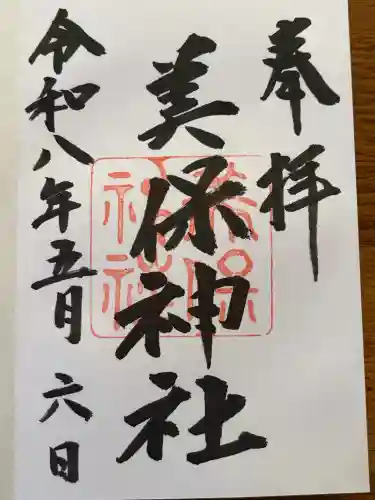 奉拝
美保神社
美保
神社
令和八年五月六日